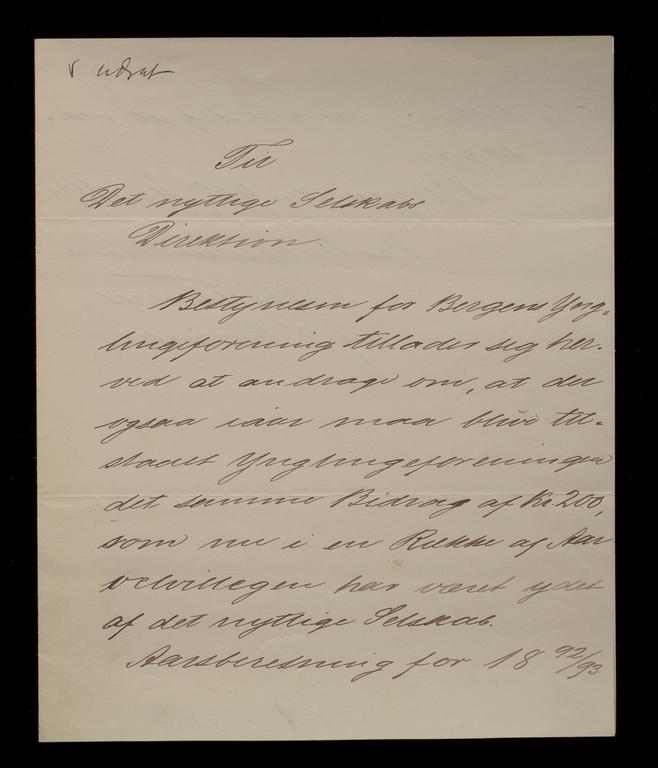 Til
Det nyttige Selskabs
Direktion.
Bestyrelsen for Bergens Yng-
lingeforening tillader sig her-
ved at andrage om, at der
ogsaa iaar maa blive til-
staaet Ynglingeforeningen
det samme Bidrag af Kr. 200,
som nu i en Række af Aar
velvilligen har været ydet
af det nyttige Selskab.
Aarsberetning for 18 92/93